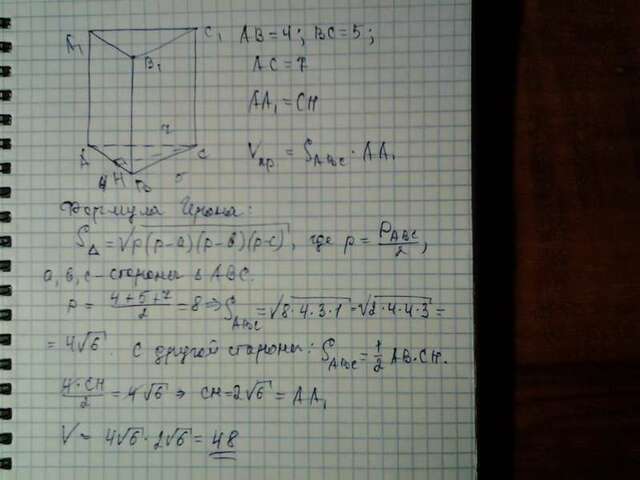 A₁ C₁ AB = 4; BC = 5;
B₁ AC = 7
AA₁ = CH
7
A C Vпр = S_ABC · AA₁
4 H B 5
Формула Герона:
S_Δ = √p(p-a)(p-b)(p-c), где p = P_ABC/2,
a, b, c - стороны Δ ABC.
p = (4+5+7)/2 = 8 ⇒ S_ABC = √8·4·3·1 = √2·4·4·3 =
= 4√6. С другой стороны: S_ABC = 1/2 AB·CH.
4·CH/2 = 4√6 ⇒ CH = 2√6 = AA₁
V = 4√6 · 2√6 = 48